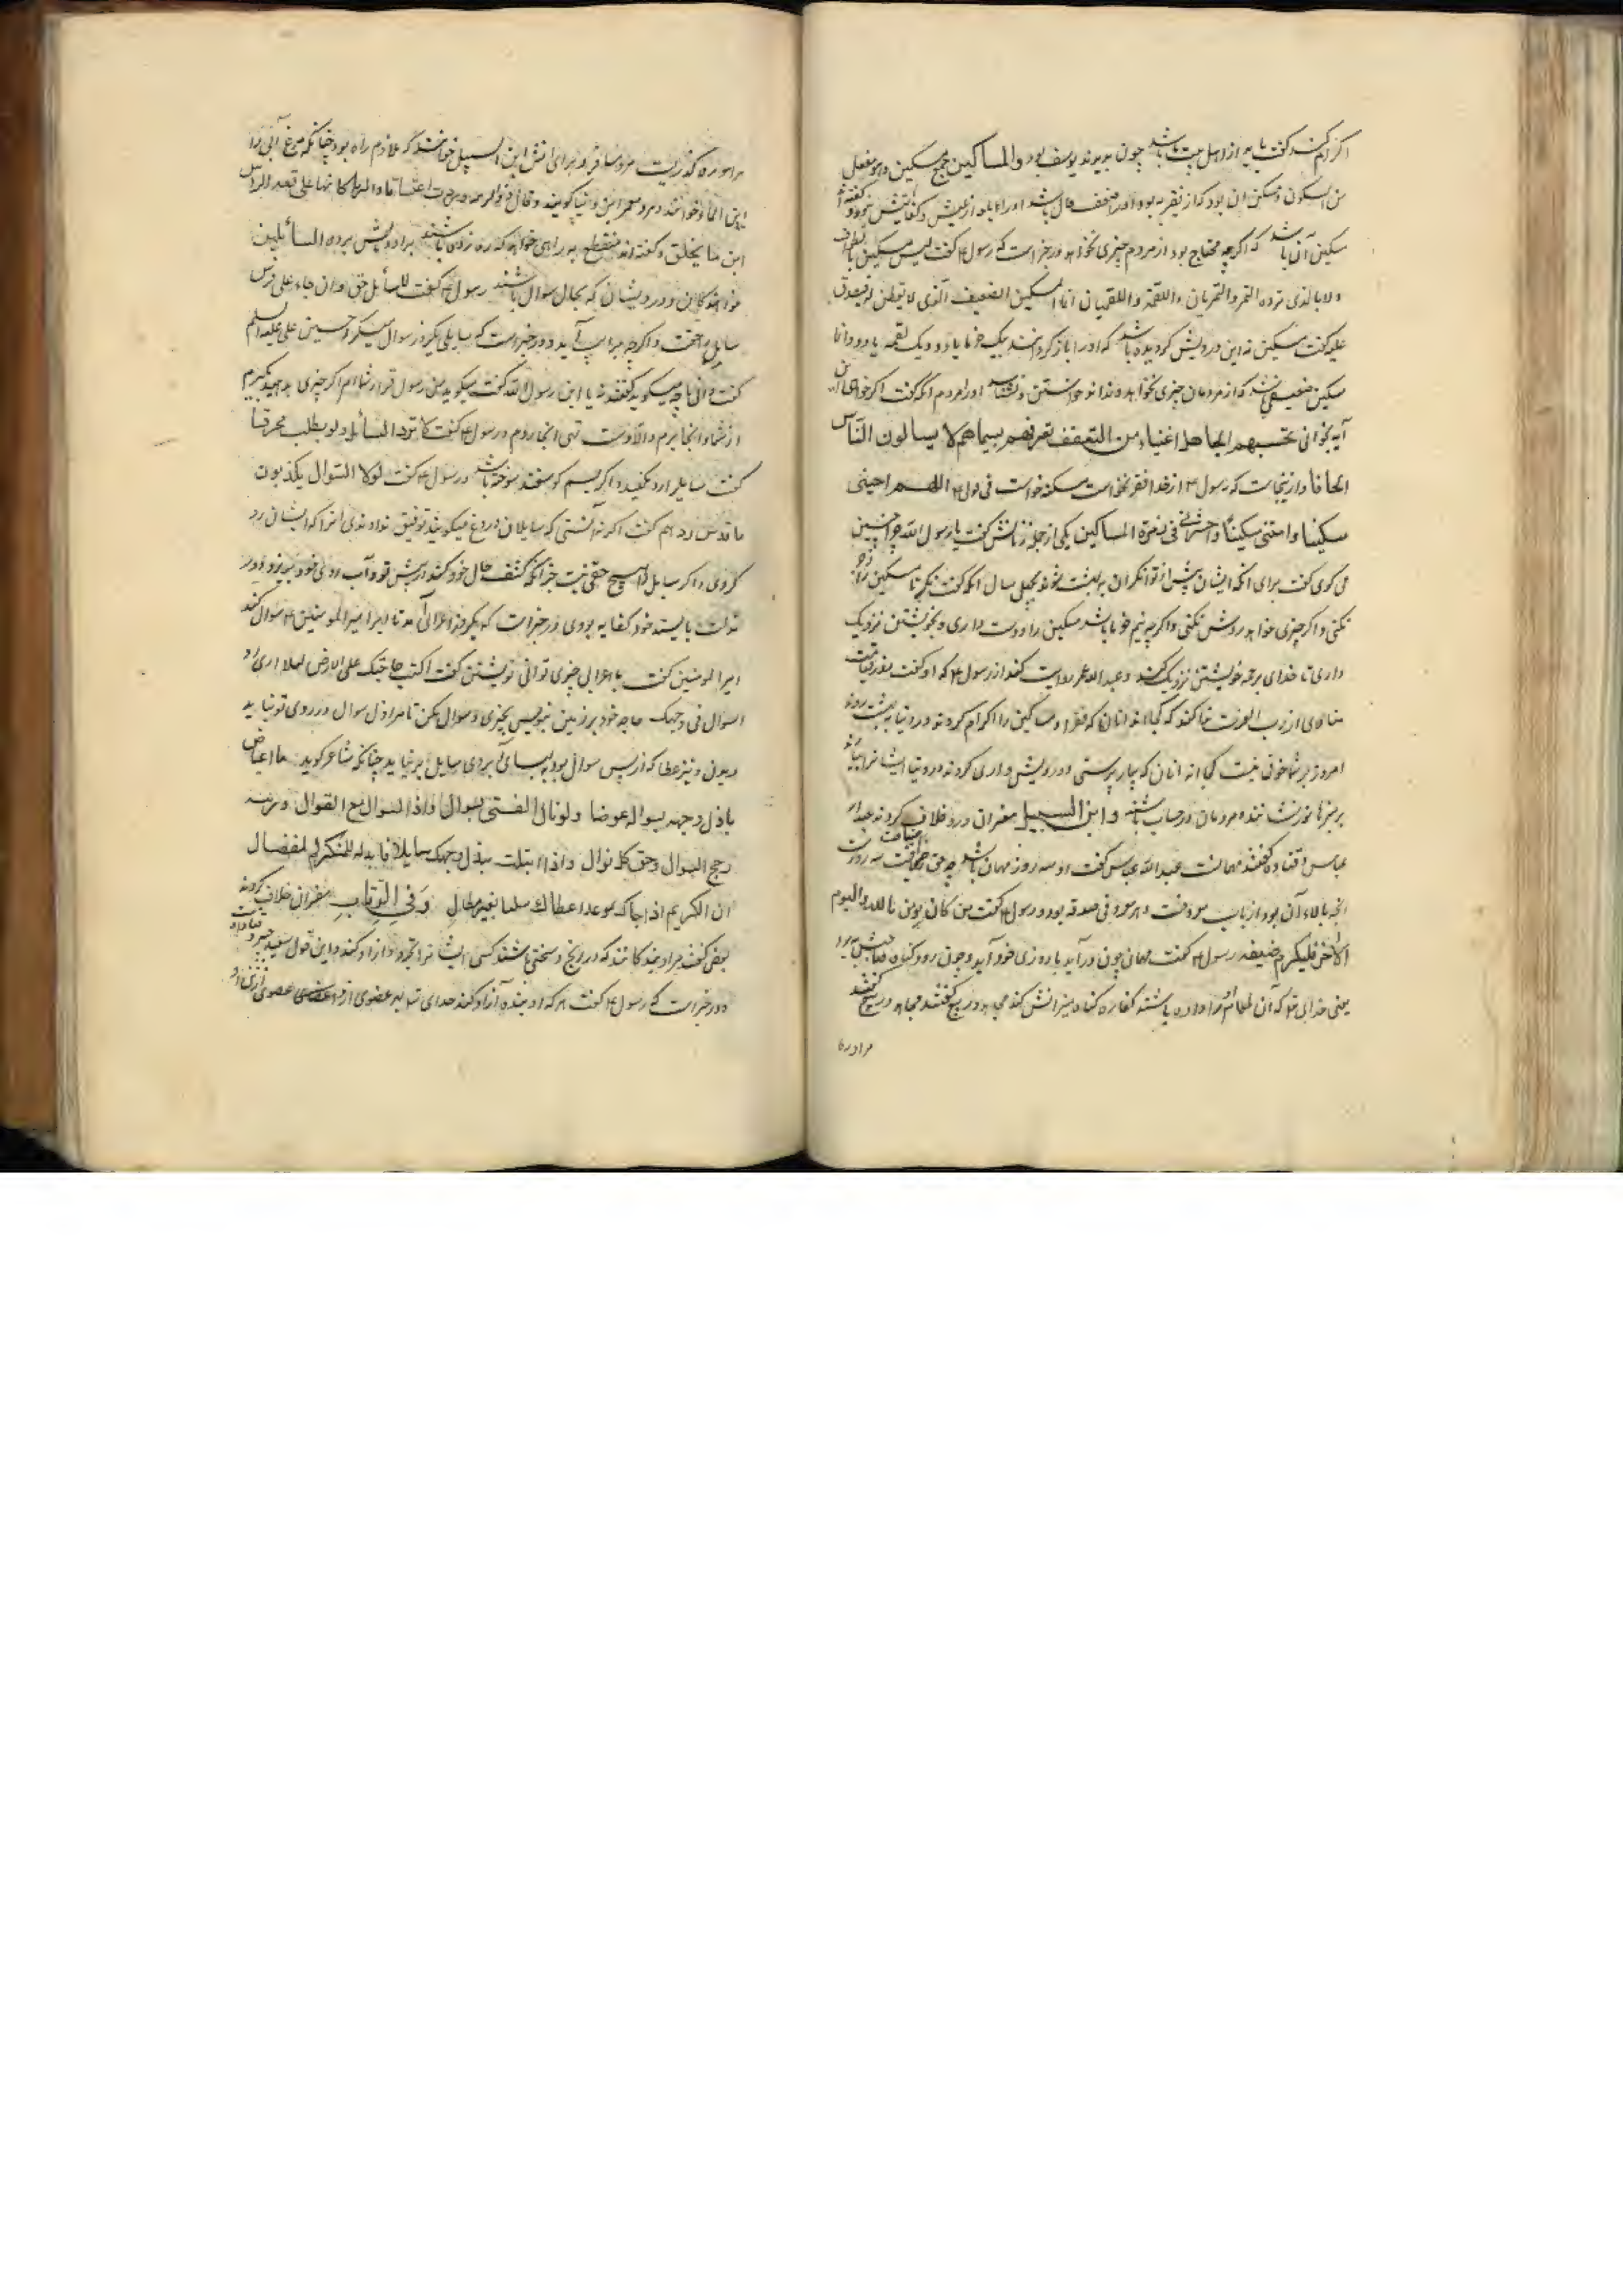 اکرام کنند گفت باید از اهل بیت باشد چون بدیوند یوسف بود والمساکین جمع مسکین وهو مفعیل
من السکون ومسکین آن بود که از فقیر بود اورا ضعف حال باشد اورا
مسکین آن باشد که اگرچه محتاج بود از مردم چیزی نخواهد ودر خبر است که رسول ع گفت لیس مسکین
ولا بالذی ترده التمرة والتمرتان واللقمة واللقمتان انما المسکین الضعیف الذی لا یفطن له فیتصدق
علیه گفت مسکین نه این درویش گردیده باشد که اورا باز گردانند بیک خرما یا دو ویک لقمه یا دو وانما
مسکین ضعیفی باشد که از مردمان چیزی نخواهد ونداند خواستن ونشناسد اورا مردم آنکه گفت اگر خواهی
آیه بخوانی تحسبهم الجاهل اغنیاء من التعفف تعرفهم بسیماهم لا یسالون الناس
الحافا واز اینجاست که رسول ع از خدا فقر نخواست مسکنه خواست فی قوله ع اللهم احینی
مسکینا وامتنی مسکینا واحشرنی فی زمرة المساکین یکی از جمله زنانش گفت یا رسول الله چرا چنین
می گوی گفت برای آنکه ایشان پیش از توانگران به بهشت شوند بچهل سال آنکه گفت نگر تا مسکین را
نکنی واگر چیزی خواهد ردش نکنی واگرچه نیم خرما باشد مسکین را دوست داری وبخویشتن نزدیک
داری تا خدای برحمة خویشتن نزدیک کند وعبد الله عمر روایت کند از رسول ع که او گفت بروز قیامت
منادی از رب العزت ندا کند که کجااند آنان که فقرا ومساکین را اکرام کردند در دنیا به بهشت روند
امروز بر شما خوفی نیست کجا اند آنان که بیمار پرستی ودرویش داری کردند در دنیا ایشانرا
بر منبرها نور نشانند ومردمان در حساب باشند وابن السبیل مفسران درو خلاف کردند عبد الله
عباس وقتاده گفتند مهمانست عبد الله عباس گفت او سه روز مهمان باشد چه حق ضیافت سه روزست
آنچه بالاء آن بود از باب معروفست وهر معروفی صدقه بود ورسول ع گفت من کان یؤمن بالله والیوم
الآخر فلیکرم ضیفه رسول ع گفت مهمان چون در آید با روزی خود آید وچون رود کناره
یعنی خدای تع که آن طعام اورا داده باشند کفاره گناه میزبانش کند مجاهد وربیع گفتند
مراد راه
مراد راه گذریست مرد مسافر وبرای آنش ابن السبیل خوانند که ملازم راه بود چنانکه مرغ آبی را
ابن الماء خوانند ومرد معمر ابن دنیا گویند وقال ذو الرمه وردت اعتسافا والثریا کانها علی قمة الراس
ابن ماء محلق وگفته اند منقطع به راهی خواهد که ره زده باشند برادویش برده السائلین
خواهندگان ودرویشان که بحال سوال باشند رسول ع گفت للسائل حق وان جاء علی فرس
سایل را حقست واگرچه بر اسب آید ودر خبر است که سایلی یکروز سوال میکرد حسین علی علیه السلم
گفت دانی تا چه میگوید گفتند نه یا ابن رسول الله گفت میگوید من رسول قرار شماام اگر چیزی بدهید بگیرم
از شما وانجا برم والا دست تهی انجا روم ورسول ع گفت لا تردد السائل ولو بظلف محرقا
گفت سایلرا رد مکنید واگر چه سم گوسفند سوخته باشد ورسول ع گفت لولا السوال یکذبون
ما قدس رد هم گفت اگر نه آنستی که سایلان دروغ میگویند توفیق ندادندی آنرا که ایشان رد
کردی واگر سایل را هیچ حقی نیست جز آنکه کشف حال خود کند در پیش تو وآب روی خود بریزد در
سوالت بایستد خود کفایه بودی ودر خبر است که یکروز اعرابی آمد تا از امیر المومنین ع سوال کند
امیر المومنین گفت یا اعرابی چیزی توانی نوشتن گفت اکتب حاجتک علی الارض لئلا اری ذل
السوال فی وجهک حاجه خود بر زمین بنویس بچیزی وسوال مکن تا مرا ذل سوال در روی تو نباید
دیدن ونیز عطا که از پس سوال بود به بهای آب روی سایل بر نیاید چنانکه شاعر گوید ما اعتاض
باذل وجهه بسواله عوضا ولو نال الغنی بسوال واذا السوال مع النوال وزنته
رجح السوال وخف کل نوال واذا ابتلیت ببذل وجهک سایلا فابذله للمتکرم المفضال
ان الکریم اذا حباک بموعد اعطاک سلسا بغیر مطال وفی الرقاب مفسران خلاف کردند
بعضی گفتند مراد بندگانند که در رنج وسختی باشند کسی ایشانرا بخرد وآزاد کند واین قول سعید جبیر
ودر خبر است که رسول ع گفت هر که او بنده آزاد کند خدای تع بهر عضوی از اعضای عضوی